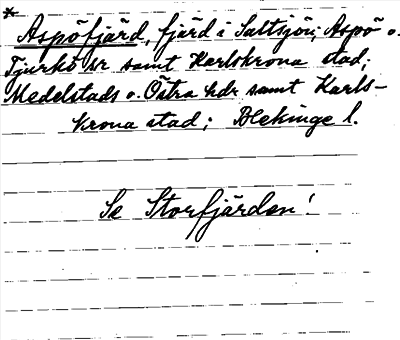 *
Aspöfjärd, fjärd i Saltsjön; Aspö o.
Tjurkö sr samt Karlskrona stad;
Medelstads o. Östra hdr samt Karls-
krona stad; Blekinge l.
Se Storfjärden!